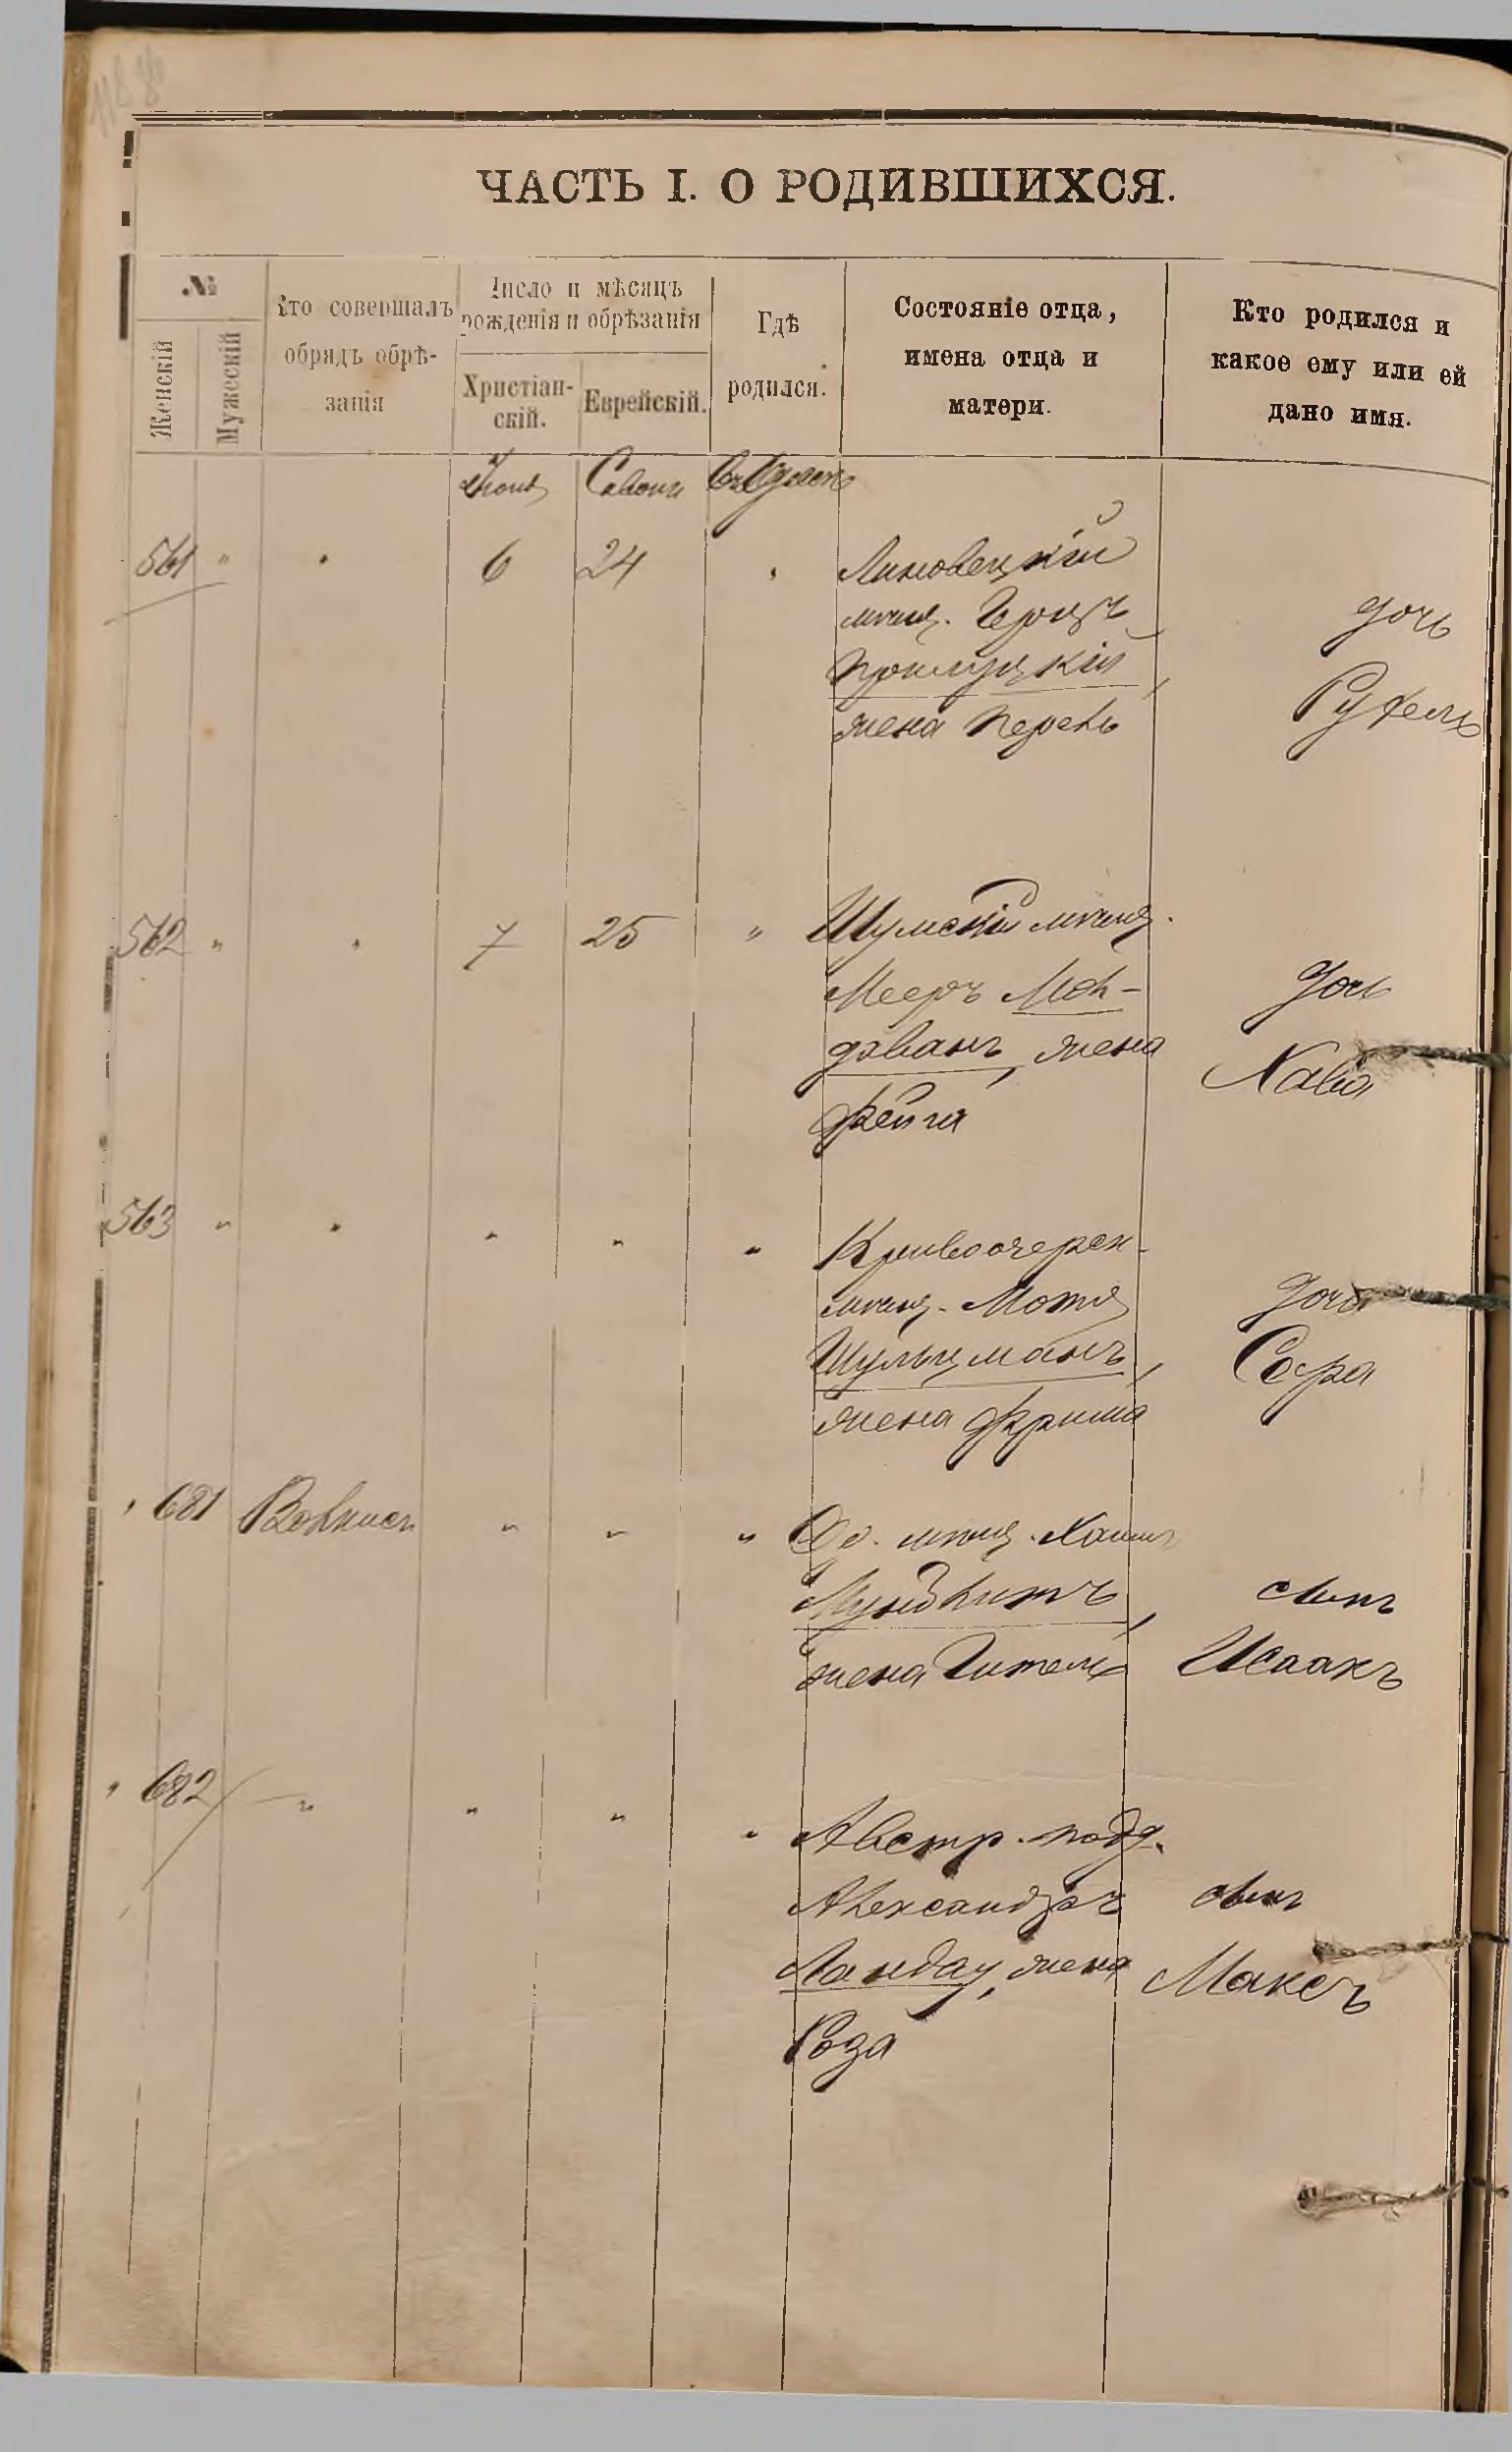 ЧАСТЬ I. О РОДИВШИХСЯ.
№
Женскій
Мужескій
Кто совершалъ
обрядъ обрѣ-
занія
Число и мѣсяцъ
рожденія и обрѣзанія
Христіан-
скій.
Еврейскій.
Гдѣ
родился.
Состояніе отца,
имена отца и
матери.
Кто родился и
какое ему или ей
дано имя.
Іюнь Сивонъ
561 " " 6 24 "
мѣщ. Герцъ
Прилуцкій,
жена Перель
дочь
Рухель
562 " " 7 25 " Шумскій мѣщ.
Мееръ Мол-
дованъ, жена
Фейга
дочь
Хава
563 " " " " " Кривоозерск.
мѣщ. Мотя
Шульцманъ,
жена Фрима
дочь
Сура
" 681 " " " Од. мѣщ. Хаимъ
Мундлитъ,
жена Гитель
сынъ
Исаакъ
" 682 " " " " Австр. подд.
Александръ
Ландау, жена
Роза
сынъ
Максъ